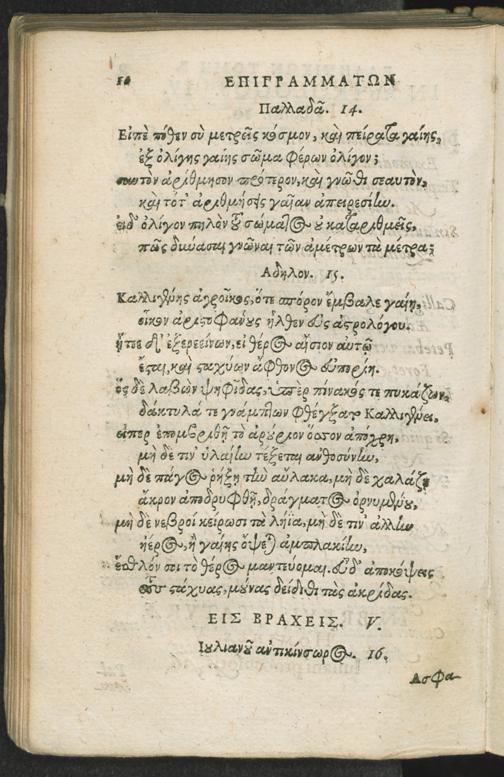 10 ΕΠΙΓΡΑΜΜΑΤΩΝ
Παλλαδᾶ. 14.
Εἰπὲ πόθεν σὺ μετρεῖς κόσμον, καὶ πείρατα γαίης,
ἐξ ὀλίγης γαίης σῶμα φέρων ὀλίγον;
σαυτὸν ἀρίθμησον πρότερον, καὶ γνῶθι σεαυτὸν,
καὶ τότ' ἀριθμήσεις γαῖαν ἀπειρεσίην.
εἰ δ' ὀλίγον πηλὸν τοῦ σώματος οὐ καταριθμεῖς,
πῶς δύνασαι γνῶναι τῶν ἀμέτρων τὰ μέτρα;
Αδηλον. 15.
Καλλιγένης ἀγροῖκος, ὅτε σπόρον ἔμβαλε γαίῃ,
οἶκον ἀριστοφάνους ἦλθεν ἐς ἀστρολόγου.
ᾔτεε δ' ἐξερεείνων, εἰ θέρος αἴσιον αὐτῷ
ἔσται, καὶ σταχύων ἄφθονος εὐπορίη.
ὃς δὲ λαβὼν ψηφῖδας, ὑπὲρ πίνακός τε πυκάζων,
δάκτυλά τε γνάμπτων φθέγξατο Καλλιγένει,
εἴπερ ἐπομβρηθῇ τὸ ἀρούριον ὅσσον ἀπόχρη,
μηδέ τιν' ὑλαίην τέξεται ἀνθοσύνην,
μηδὲ πάγος ῥήξῃ τὴν αὔλακα, μηδὲ χαλάζῃ
ἄκρον ἀποδρυφθῇ, δράγματος ὀρνυμένου,
μηδὲ νεβροὶ κείρωσι τὰ λήϊα, μηδέ τιν' ἄλλην
ἠέρος, ἢ γαίης ὄψεται ἀμπλακίην,
ἐσθλόν σοι τὸ θέρος μαντεύομαι. εὖ δ' ἀποκόψεις
τοὺς στάχυας, μούνας δείδιθι τὰς ἀκρίδας.
ΕΙΣ ΒΡΑΧΕΙΣ. V.
Ιουλιανοῦ ἀντικίνσωρος. 16.
Ασφα-